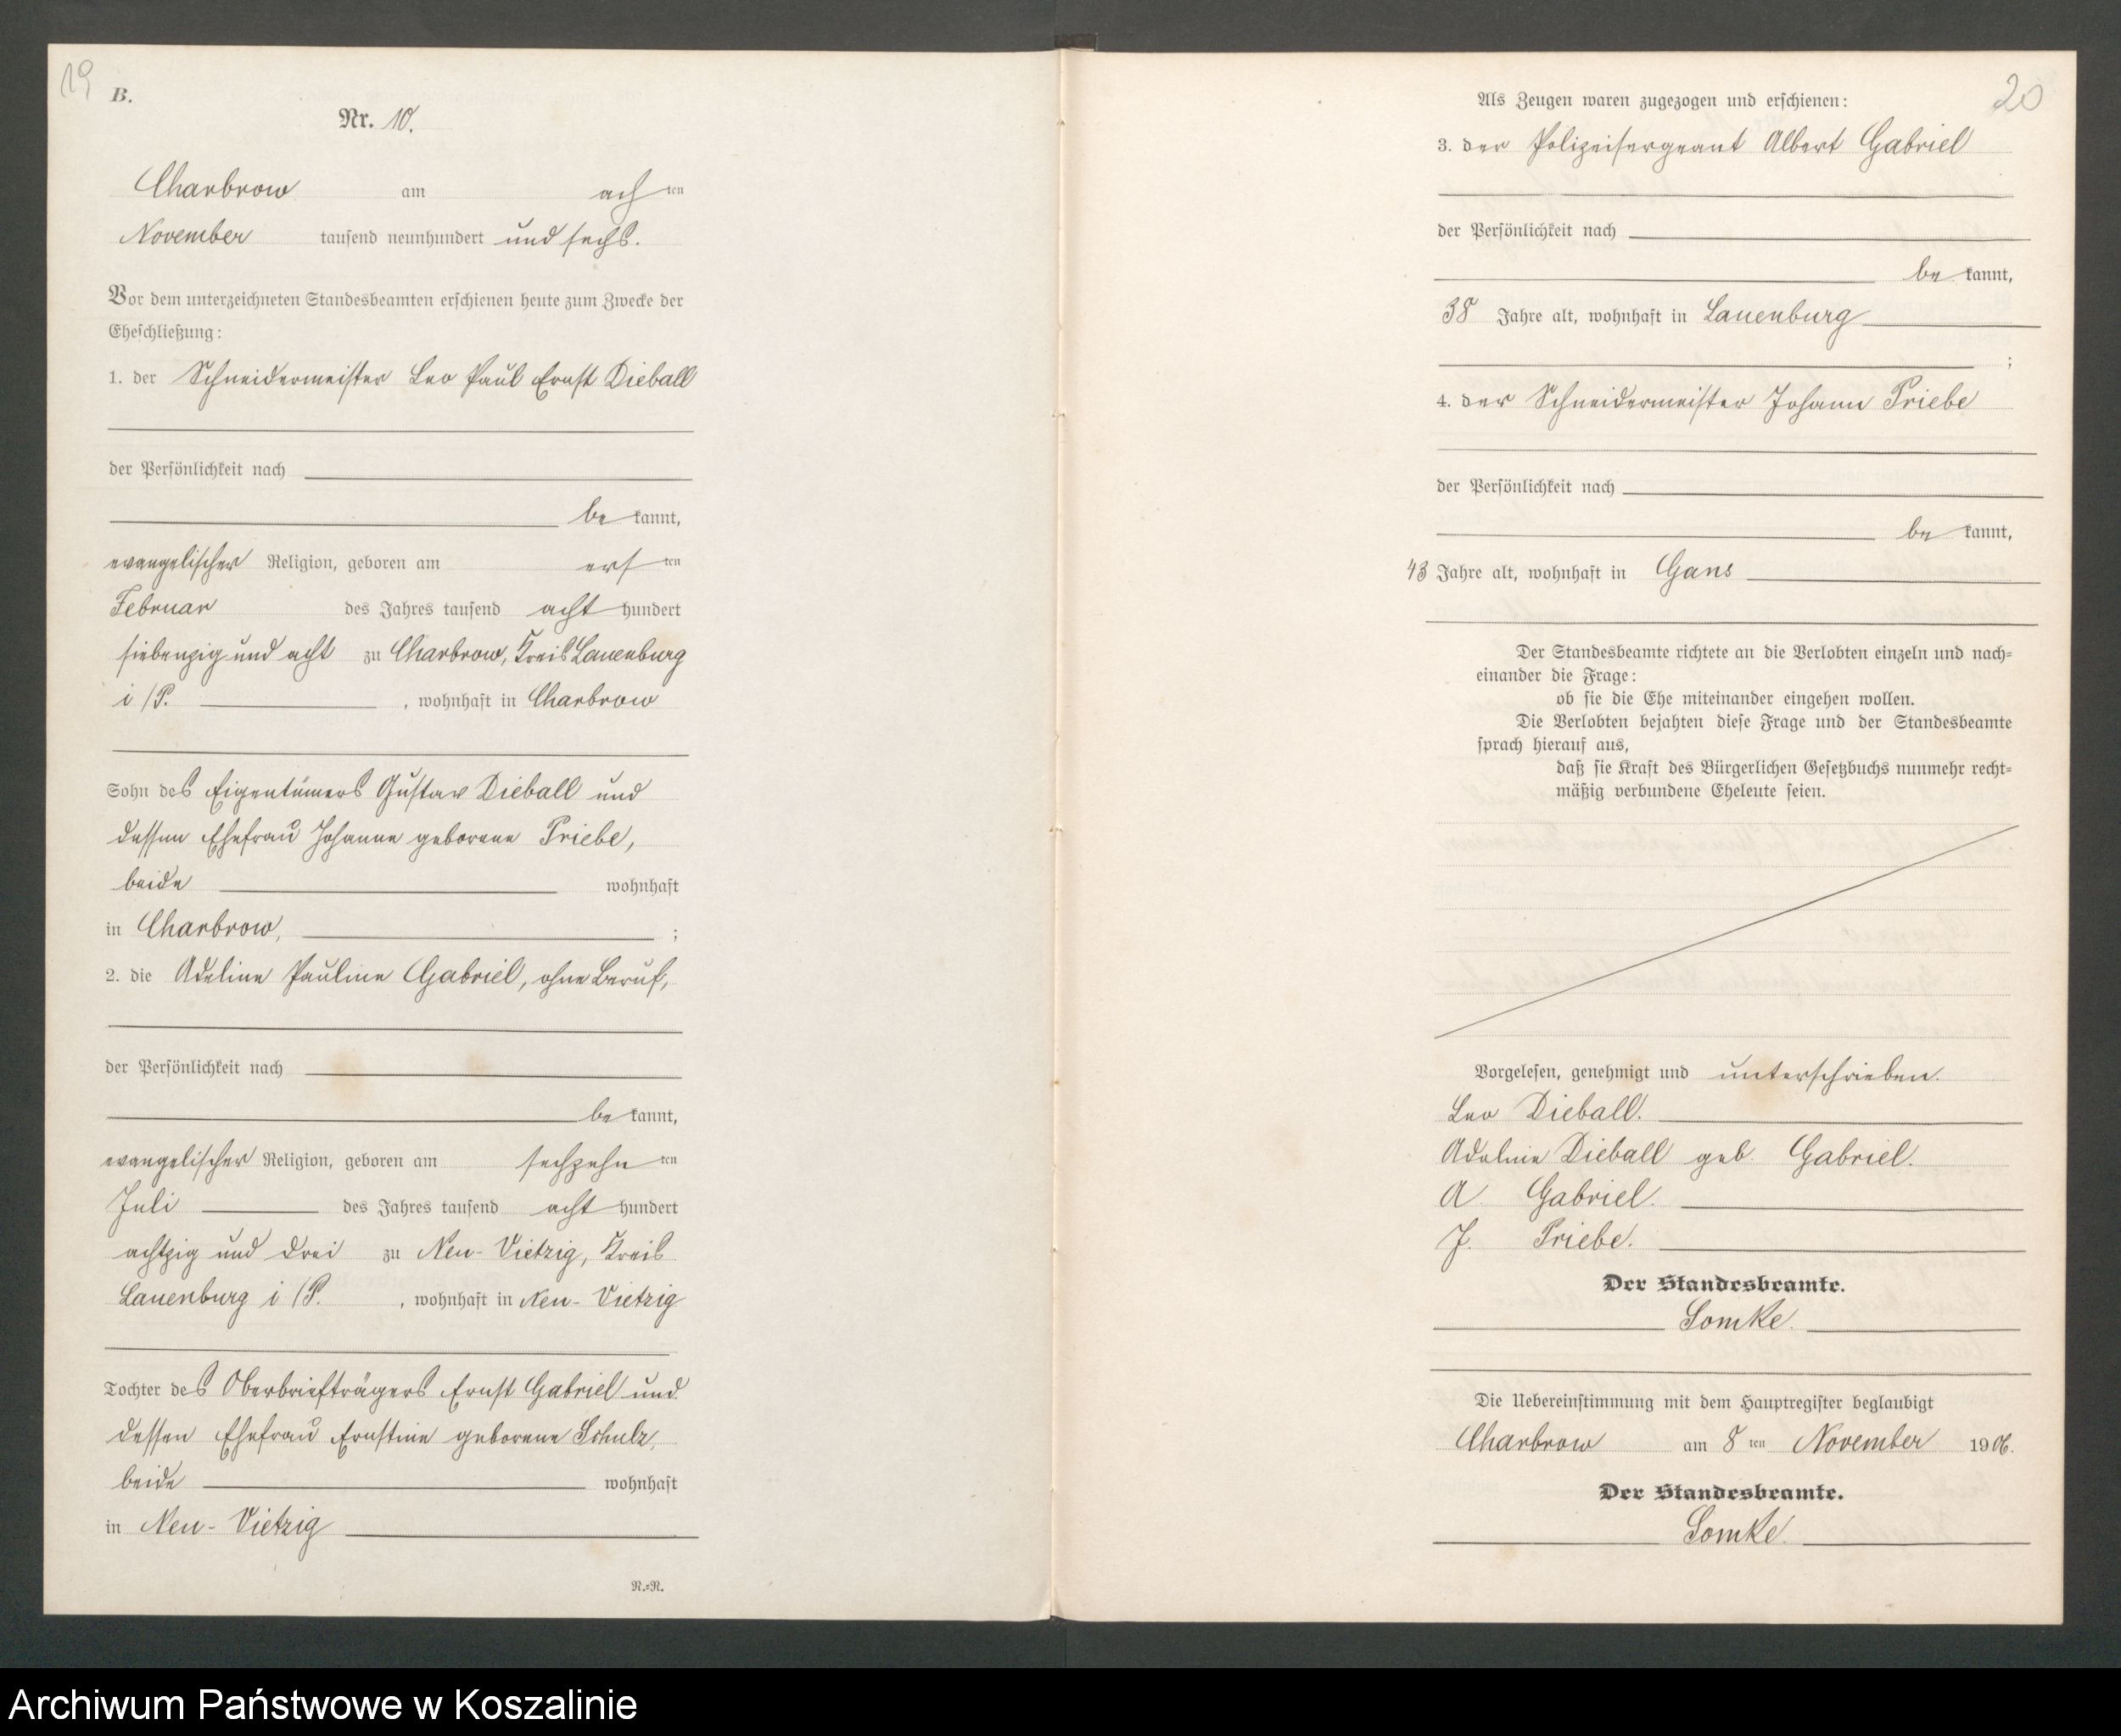 19
B.
Nr. 10.
Charbrow am achten
November tausend neunhundert und sechs.
Vor dem unterzeichneten Standesbeamten erschienen heute zum Zwecke der
Eheschließung:
1. der Schneidermeister Leo Paul Ernst Dieball
der Persönlichkeit nach
be kannt,
evangelischer Religion, geboren am ersten
Februar des Jahres tausend acht hundert
siebenzig und acht zu Charbrow, Kreis Lauenburg
i/P. , wohnhaft in Charbrow
Sohn des Eigentümers Gustav Dieball und
dessen Ehefrau Johanne geborene Priebe,
beide wohnhaft
in Charbrow, ;
2. die Adeline Pauline Gabriel, ohne Beruf,
der Persönlichkeit nach
be kannt,
evangelischer Religion, geboren am sechzehnten
Juli des Jahres tausend acht hundert
achtzig und drei zu Neu-Vietzig, Kreis
Lauenburg i/P. , wohnhaft in Neu-Vietzig
Tochter des Oberbriefträgers Ernst Gabriel und
dessen Ehefrau Ernstine geborene Schulz,
beide wohnhaft
in Neu-Vietzig
N.=N.
20
Als Zeugen waren zugezogen und erschienen:
3. der Polizeisergeant Albert Gabriel
der Persönlichkeit nach
be kannt,
38 Jahre alt, wohnhaft in Lauenburg
;
4. der Schneidermeister Johann Priebe
der Persönlichkeit nach
be kannt,
43 Jahre alt, wohnhaft in Gans
Der Standesbeamte richtete an die Verlobten einzeln und nach=
einander die Frage:
ob sie die Ehe miteinander eingehen wollen.
Die Verlobten bejahten diese Frage und der Standesbeamte
sprach hierauf aus,
daß sie kraft des Bürgerlichen Gesetzbuchs nunmehr recht=
mäßig verbundene Eheleute seien.
Vorgelesen, genehmigt und unterschrieben.
Leo Dieball.
Adeline Dieball geb. Gabriel.
A. Gabriel.
J. Priebe.
Der Standesbeamte.
Somke.
Die Uebereinstimmung mit dem Hauptregister beglaubigt
Charbrow am 8 ten November 1906.
Der Standesbeamte.
Somke.
Archiwum Państwowe w Koszalinie